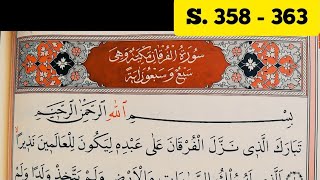 S. 358 - 363
سُورَةُ الْفُرْقَانِ مَكِّيَّةٌ وَهِيَ
سَبْعٌ وَسَبْعُونَ اٰيَةً
بِسْمِ اللّٰهِ الرَّحْمٰنِ الرَّحِيمِ
تَبَارَكَ الَّذ۪ي نَزَّلَ الْفُرْقَانَ عَلٰى عَبْدِه۪ لِيَكُونَ لِلْعَالَم۪ينَ نَذ۪يرًا